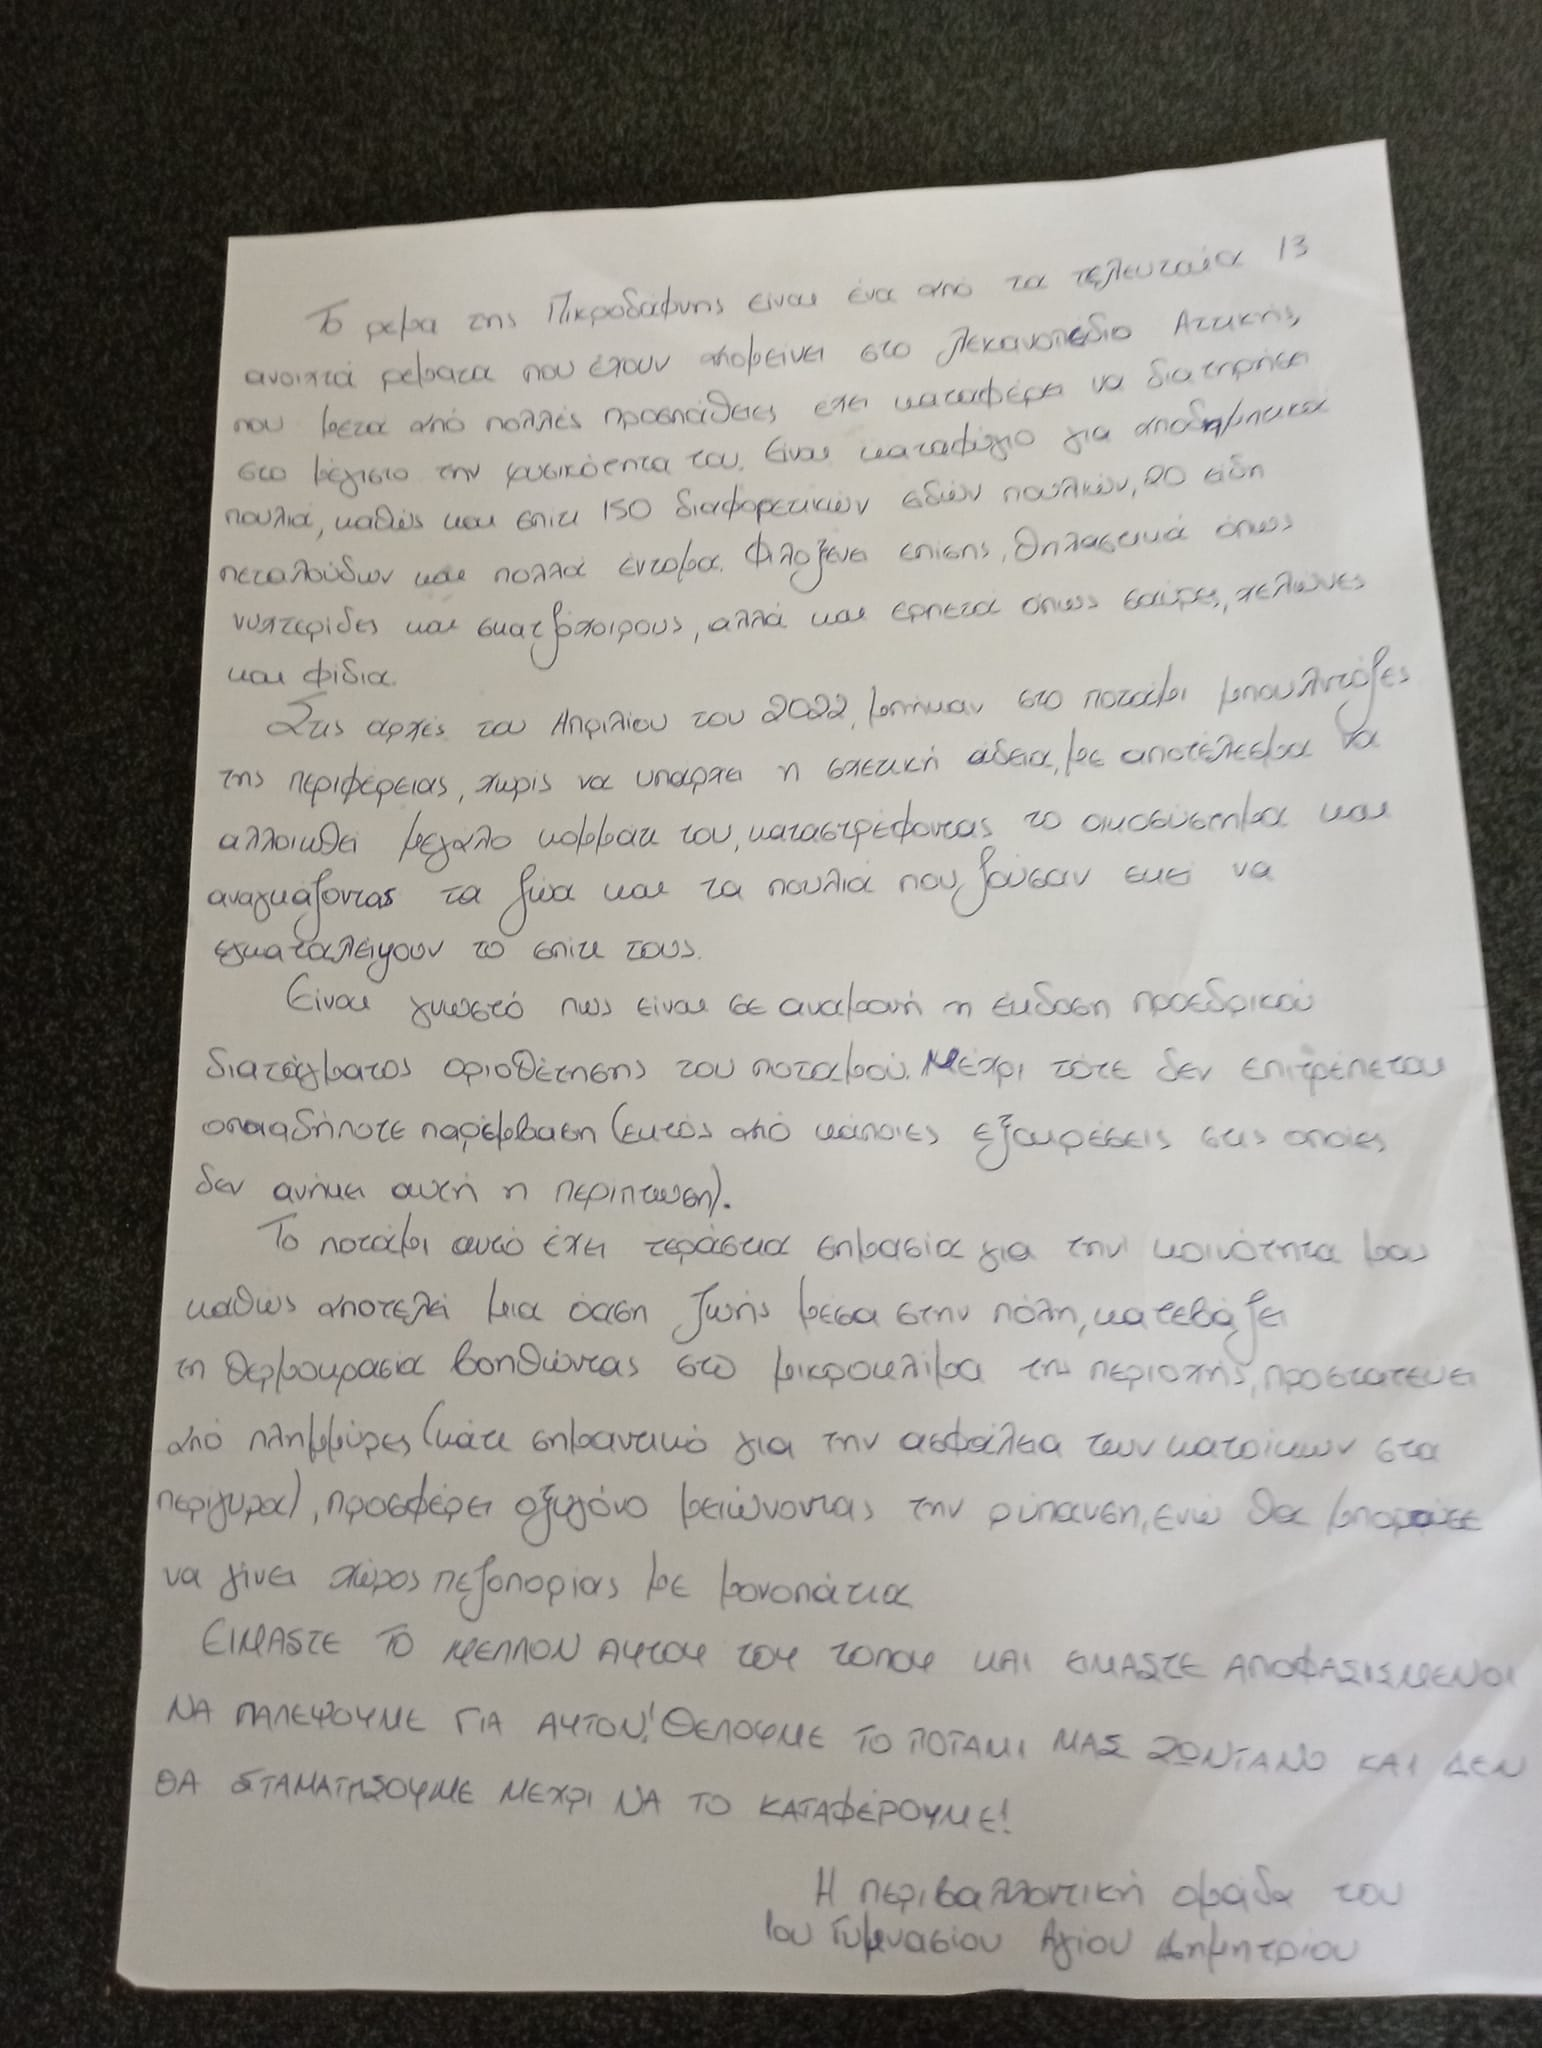 Το ρεμα της Πικροδάφνης είναι ένα από τα τελευταία 13
ανοιχτά ρέματα που έχουν απομείνει στο λεκανοπέδιο Αττικής,
που μετά από πολλές προσπάθειες έχει καταφέρει να διατηρήσει
στο μέγιστο την φυσικότητα του. Είναι καταφύγιο για αποδημητικά
πουλιά, καθώς και σπίτι 150 διαφορετικών ειδών πουλιών, 20 είδη
πεταλούδων και πολλά έντομα. Φιλοξενεί επίσης, θηλαστικά όπως
νυχτερίδες και σκατζόχοιρους, αλλά και ερπετά όπως σαύρες, χελώνες
και φίδια.
Στις αρχές του Απριλίου του 2022, μπήκαν στο ποτάμι μπουλντόζες
της περιφέρειας, χωρίς να υπάρχει η σχετική άδεια, με αποτέλεσμα να
αλλοιωθεί μεγάλο κομμάτι του, καταστρέφοντας το οικοσύστημα και
αναγκάζοντας τα ζώα και τα πουλιά που ζούσαν εκεί να
εγκαταλείψουν το σπίτι τους.
Είναι γνωστό πως είναι σε αναμονή η έκδοση προεδρικού
διατάγματος οριοθέτησης του ποταμού. Μέχρι τότε δεν επιτρέπεται
οποιαδήποτε παρέμβαση (εκτός από κάποιες εξαιρέσεις στις οποίες
δεν ανήκει αυτή η περίπτωση).
Το ποτάμι αυτό έχει τεράστια σημασία για την κοινότητα μου
καθώς αποτελεί μια όαση ζωής μέσα στην πόλη, κατεβάζει
τη θερμοκρασία βοηθώντας στο μικροκλίμα της περιοχής, προστατεύει
από πλημμύρες (κάτι σημαντικό για την ασφάλεια των κατοίκων στα
περίγυρα), προσφέρει οξυγόνο μειώνοντας την ρύπανση, ενώ θα μπορούσε
να γίνει χώρος πεζοπορίας με μονοπάτια
ΕΙΜΑΣΤΕ ΤΟ ΜΕΛΛΟΝ ΑΥΤΟΥ ΤΟΥ ΤΟΠΟΥ ΚΑΙ ΕΙΜΑΣΤΕ ΑΠΟΦΑΣΙΣΜΕΝΟΙ
ΝΑ ΠΑΛΕΨΟΥΜΕ ΓΙΑ ΑΥΤΟΝ! ΘΕΛΟΥΜΕ ΤΟ ΠΟΤΑΜΙ ΜΑΣ ΖΩΝΤΑΝΟ ΚΑΙ ΔΕΝ
ΘΑ ΣΤΑΜΑΤΗΣΟΥΜΕ ΜΕΧΡΙ ΝΑ ΤΟ ΚΑΤΑΦΕΡΟΥΜΕ!
Η περιβαλλοντική ομάδα του
1ου Γυμνασίου Αγίου Δημητρίου